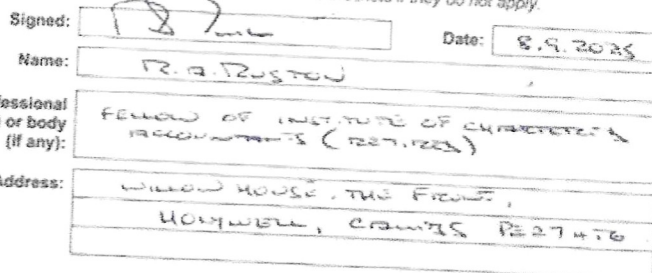 if they do not apply.
Signed:
Date: 8.9.2025
Name: R.A. RUSTON
essional
or body
(if any): FELLOW OF INSTITUTE OF CHARTERED
ACCOUNTANTS (RETIRED)
Address: WILLOW HOUSE, THE FRONT,
HOLYWELL, CAMBS PE27 4TG